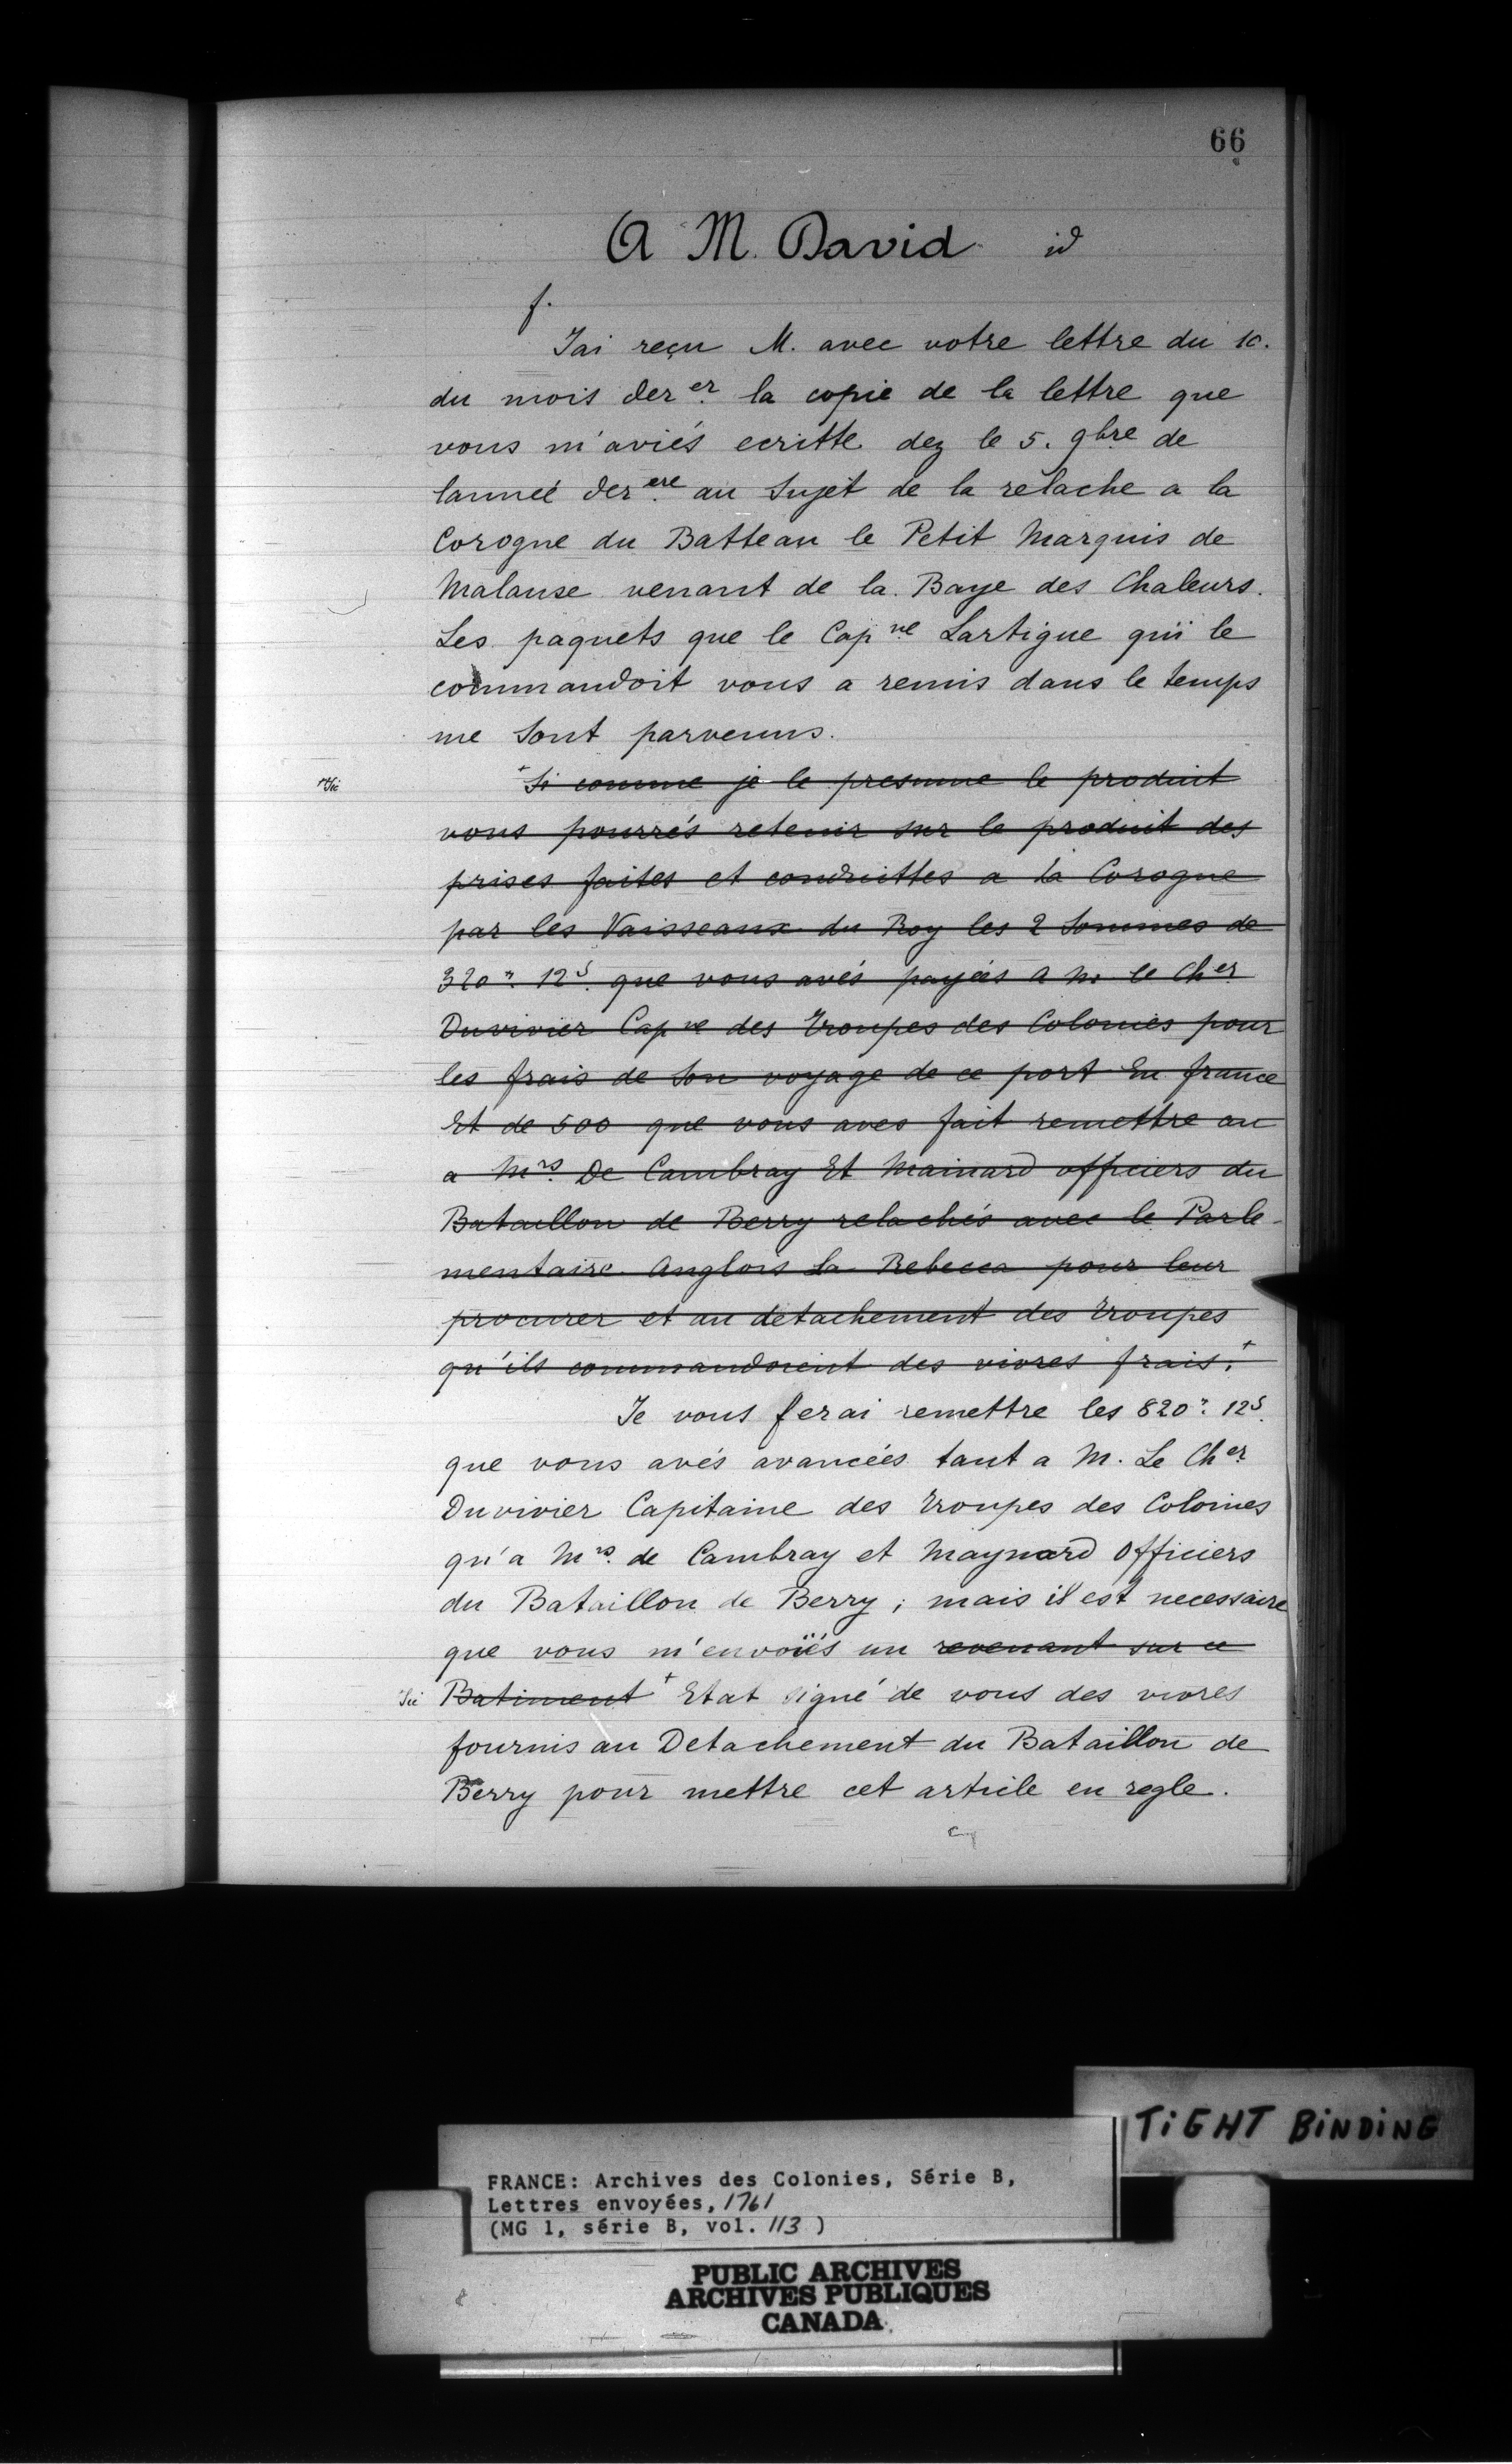 66
A M. David id
f.
Jai reçu M. avec votre lettre du 10.
du mois der.er la copie de la lettre que
vous m'aviés ecritte dez le 5. 9bre de
lanneé der.ere au Sujet de la relache a la
Corogne du Batteau le Petit Marquis de
Malause venant de la Baye des Chaleurs.
Les paquets que le Cap.ne Lartigue qui le
commandoit vous a remis dans le temps
me Sont parvenus.
+Sic +Si comme je le presume le produit
vous pourrés retenir sur le produit des
prises faites et conduittes a la Corogne
par les Vaisseaux du Roy les 2 Sommes de
320.₶ 12.s que vous avés payées a M. le Ch.er
Duvivier Cap.ne des Troupes des Colonies pour
les frais de Son voyage de ce port En france
Et de 500 que vous aves fait remettre au
a M.rs De Cambray Et Mainard officiers du
Bataillon de Berry relachés avec le Parle-
mentaire Anglois La Rebecca pour leur
procurer et au detachement des Troupes
qu'ils commandoient des vivres frais.+
Je vous ferai remettre les 820.₶ 12.s
que vous avés avancées tant a M. Le Ch.er
Duvivier Capitaine des Troupes des Colonies
qu'a M.rs de Cambray et Maynard Officiers
du Bataillon de Berry; mais il est necessaire
que vous m'envoïés un revenant sur ce
+Sic Batiment + Etat signé de vous des vivres
fournis au Detachement du Bataillon de
Berry pour mettre cet article en regle.
TIGHT BINDING
FRANCE: Archives des Colonies, Série B,
Lettres envoyées, 1761
(MG 1, série B, vol. 113 )
PUBLIC ARCHIVES
ARCHIVES PUBLIQUES
CANADA